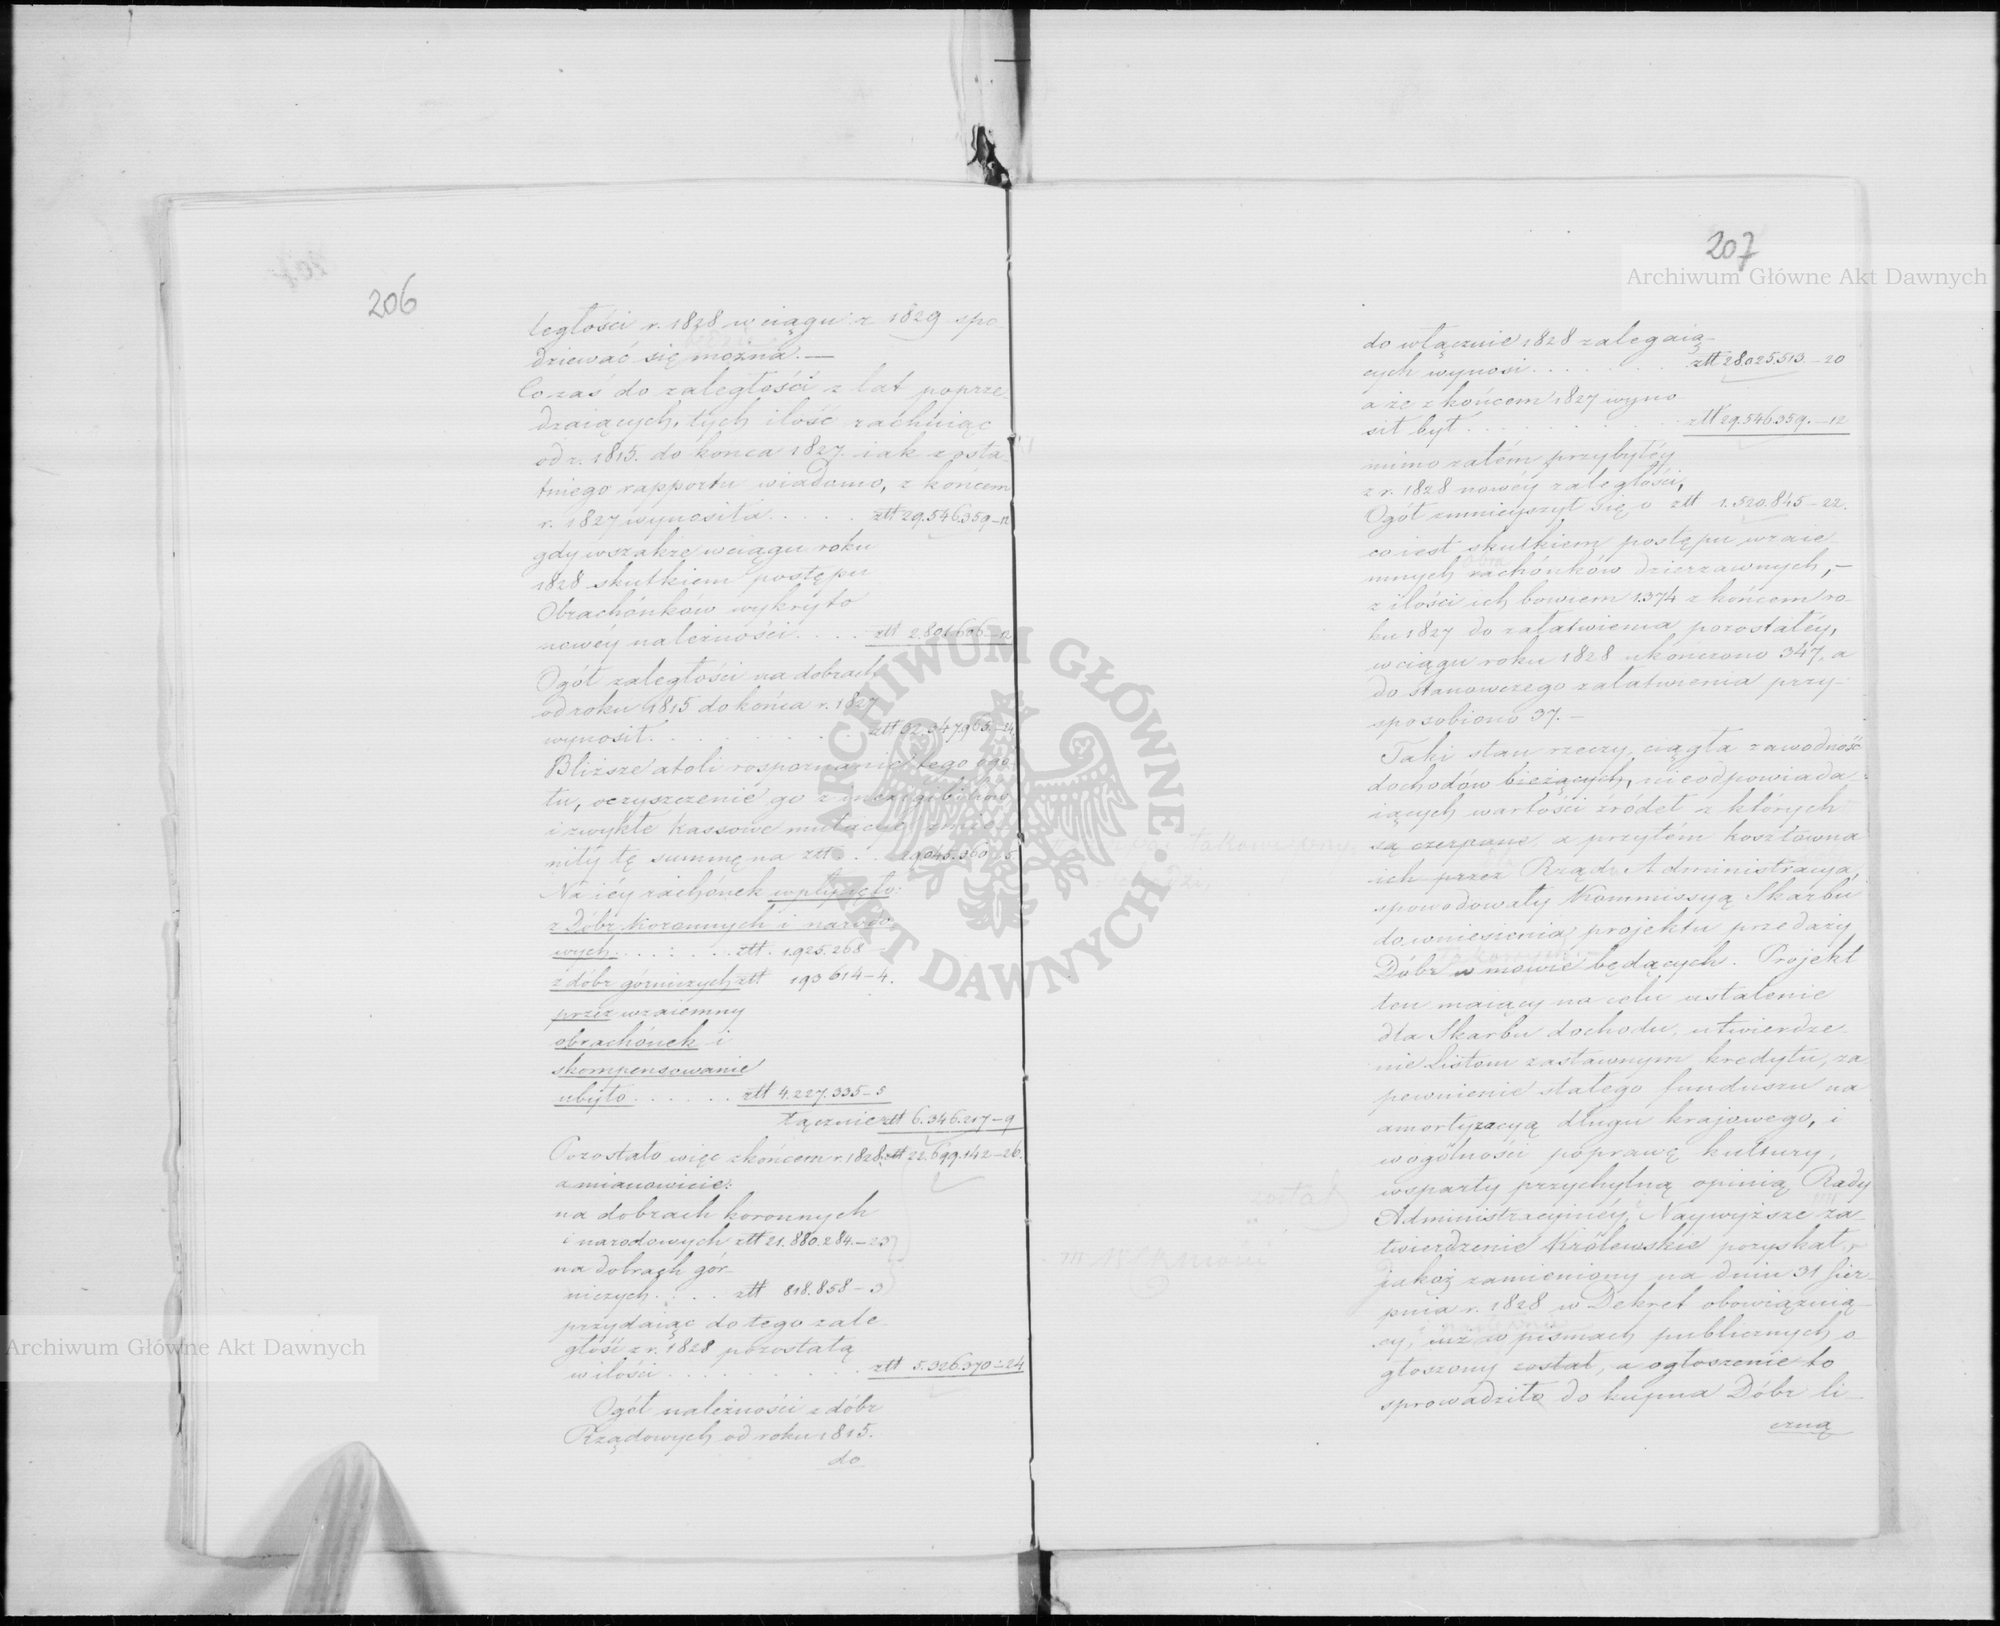 206
ległości r. 1828 w ciągu r 1829 spo
dziewać się można. —
Co zaś do zaległości z lat poprze
dzaiących, tych ilość rachuiąc
od r. 1815. do konca 1827. iak z osta
tniego rapportu wiadomo, z końcem
r. 1827 wynosiła . . . . złtt 29.546.359 – 12
gdy wszakże w ciągu roku
1828 skutkiem postępu
Obrachónków wykryto
nowéy należności . . . . złtt 2.801.606 – 12
Ogół zaległości na dobrach
od roku 1815 do końca r. 1827
wynosił . . . . . . . złtt 32.347.965. – 24
Bliższe atoli rospoznanie tego ogó
łu, oczyszczenie go z
i zwykłe kassowe mutacye zmie
niły tę summę na złtt . . . 29.045.360 – 5
Na iéy rachónek wpłynęło:
z Dóbr koronnych i narodo
wych . . . : . . . złtt. 1.925.268
z dóbr górniczych złtt 193.614 – 4.
przez wzaiemny
obrachónek i
skompensowanie
ubyło . . . . . . złtt 4.227.335 – 5
łącznie złtt 6.346.217 – 9
Pozostało więc z końcem r. 1828. złtt 22.699.142 – 26.
a mianowicie:
na dobrach koronnych
i narodowych złtt 21.880.284. – 23
na dobrach gór
niczych . . . . złtt 818.858 – 3
przydaiąc do tego zale
głość z r. 1828 pozostałą
w ilości . . . . . . . . . złtt 5.326.370 – 24
Ogół należności z dóbr
Rządowych od roku 1815.
do
207
do włącznie 1828 zalegaią
cych wynosi . . . . . . . złtt 28.025.513. – 20
a że z końcem 1827 wyno
sił był . . . . . . . . złtt 29.546.359. – 12
mimo zatém przybyłéy
z r. 1828 nowéy zaległości,
Ogół zmnieyszył się o złtt 1.520.845 – 22.
co iest skutkiem postępu wzaie
mnych obrachónków dzierżawnych, –
z ilości ich bowiem 1.374 z końcem ro
ku 1827 do załatwienia pozostałéy,
w ciągu roku 1828 ukończono 347, a
do stanowczego załatwienia przy
sposobiono 37. –
Taki stan rzeczy, ciągła zawodność
dochodów bieżących, nieodpowiada
iących wartości źródeł z których
są czerpane, a przytém kosztowna
ich przez Rząd Administracya,
spowodowały Kommissyą Skarbu
do wniesienia projektu przedaży
Dóbr w mowie będących. Projekt
ten maiący na celu ustalenie
dla Skarbu dochodu, utwierdze
nie Listom zastawnym kredytu, za
pewnienie stałego funduszu na
amortyzacyą długu krajowego, i
w ogólności poprawę kultury,
wsparty przychylną opinią Rady
Administracyinéy, Naywyższe za
twierdzenie Królewskie pozyskał,
jakoż zamieniony na dniu 31 Sier
pnia r. 1828 w Dekret obowiązuią
cy, już w pismach publicznych o
głoszony został, a ogłoszenie to
sprowadziło do kupna Dóbr li
czną
Archiwum Główne Akt Dawnych
Archiwum Główne Akt Dawnych
ARCHIWUM GŁÓWNE · AKT DAWNYCH ·